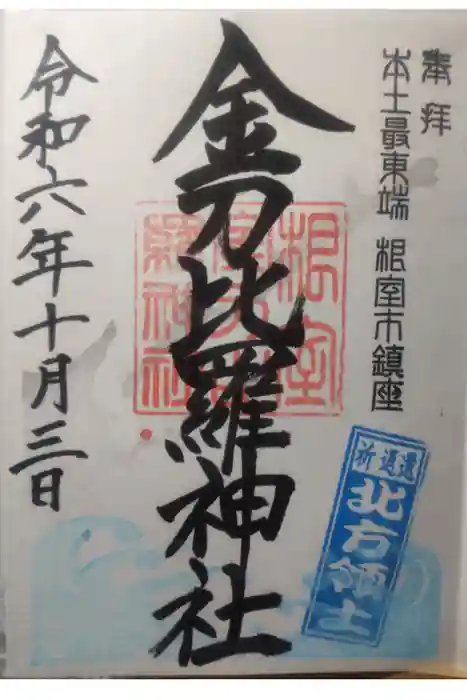 奉拝
本土最東端 根室市鎮座
金刀比羅神社
令和六年十月三日
根室
金刀比
羅神社
祈返還
北方領土